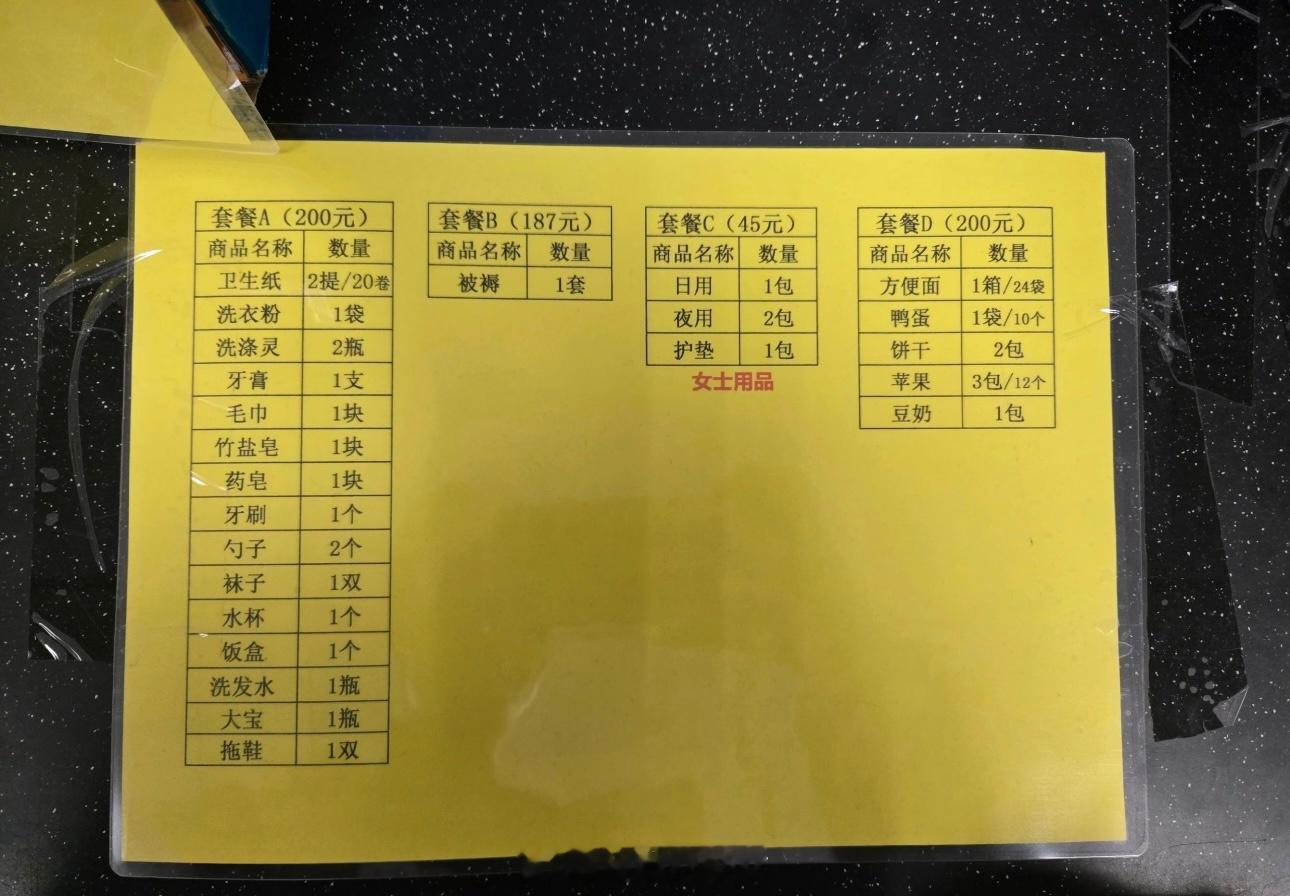 套餐A（200元）
商品名称 数量
卫生纸 2提/20卷
洗衣粉 1袋
洗涤灵 2瓶
牙膏 1支
毛巾 1块
竹盐皂 1块
药皂 1块
牙刷 1个
勺子 2个
袜子 1双
水杯 1个
饭盒 1个
洗发水 1瓶
大宝 1瓶
拖鞋 1双
套餐B（187元）
商品名称 数量
被褥 1套
套餐C（45元）
商品名称 数量
日用 1包
夜用 2包
护垫 1包
女士用品
套餐D（200元）
商品名称 数量
方便面 1箱/24袋
鸭蛋 1袋/10个
饼干 2包
苹果 3包/12个
豆奶 1包